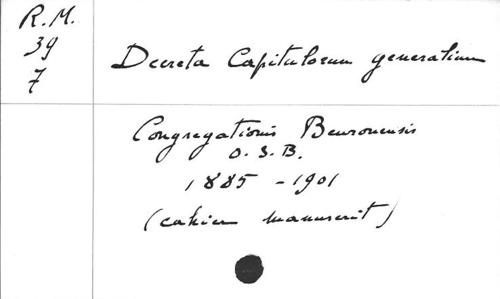 R.M.
39
7
Decreta Capitulorum generalium
Congregationis Beuronensis
O.S.B.
1885 - 1901
(cahier manuscrit)